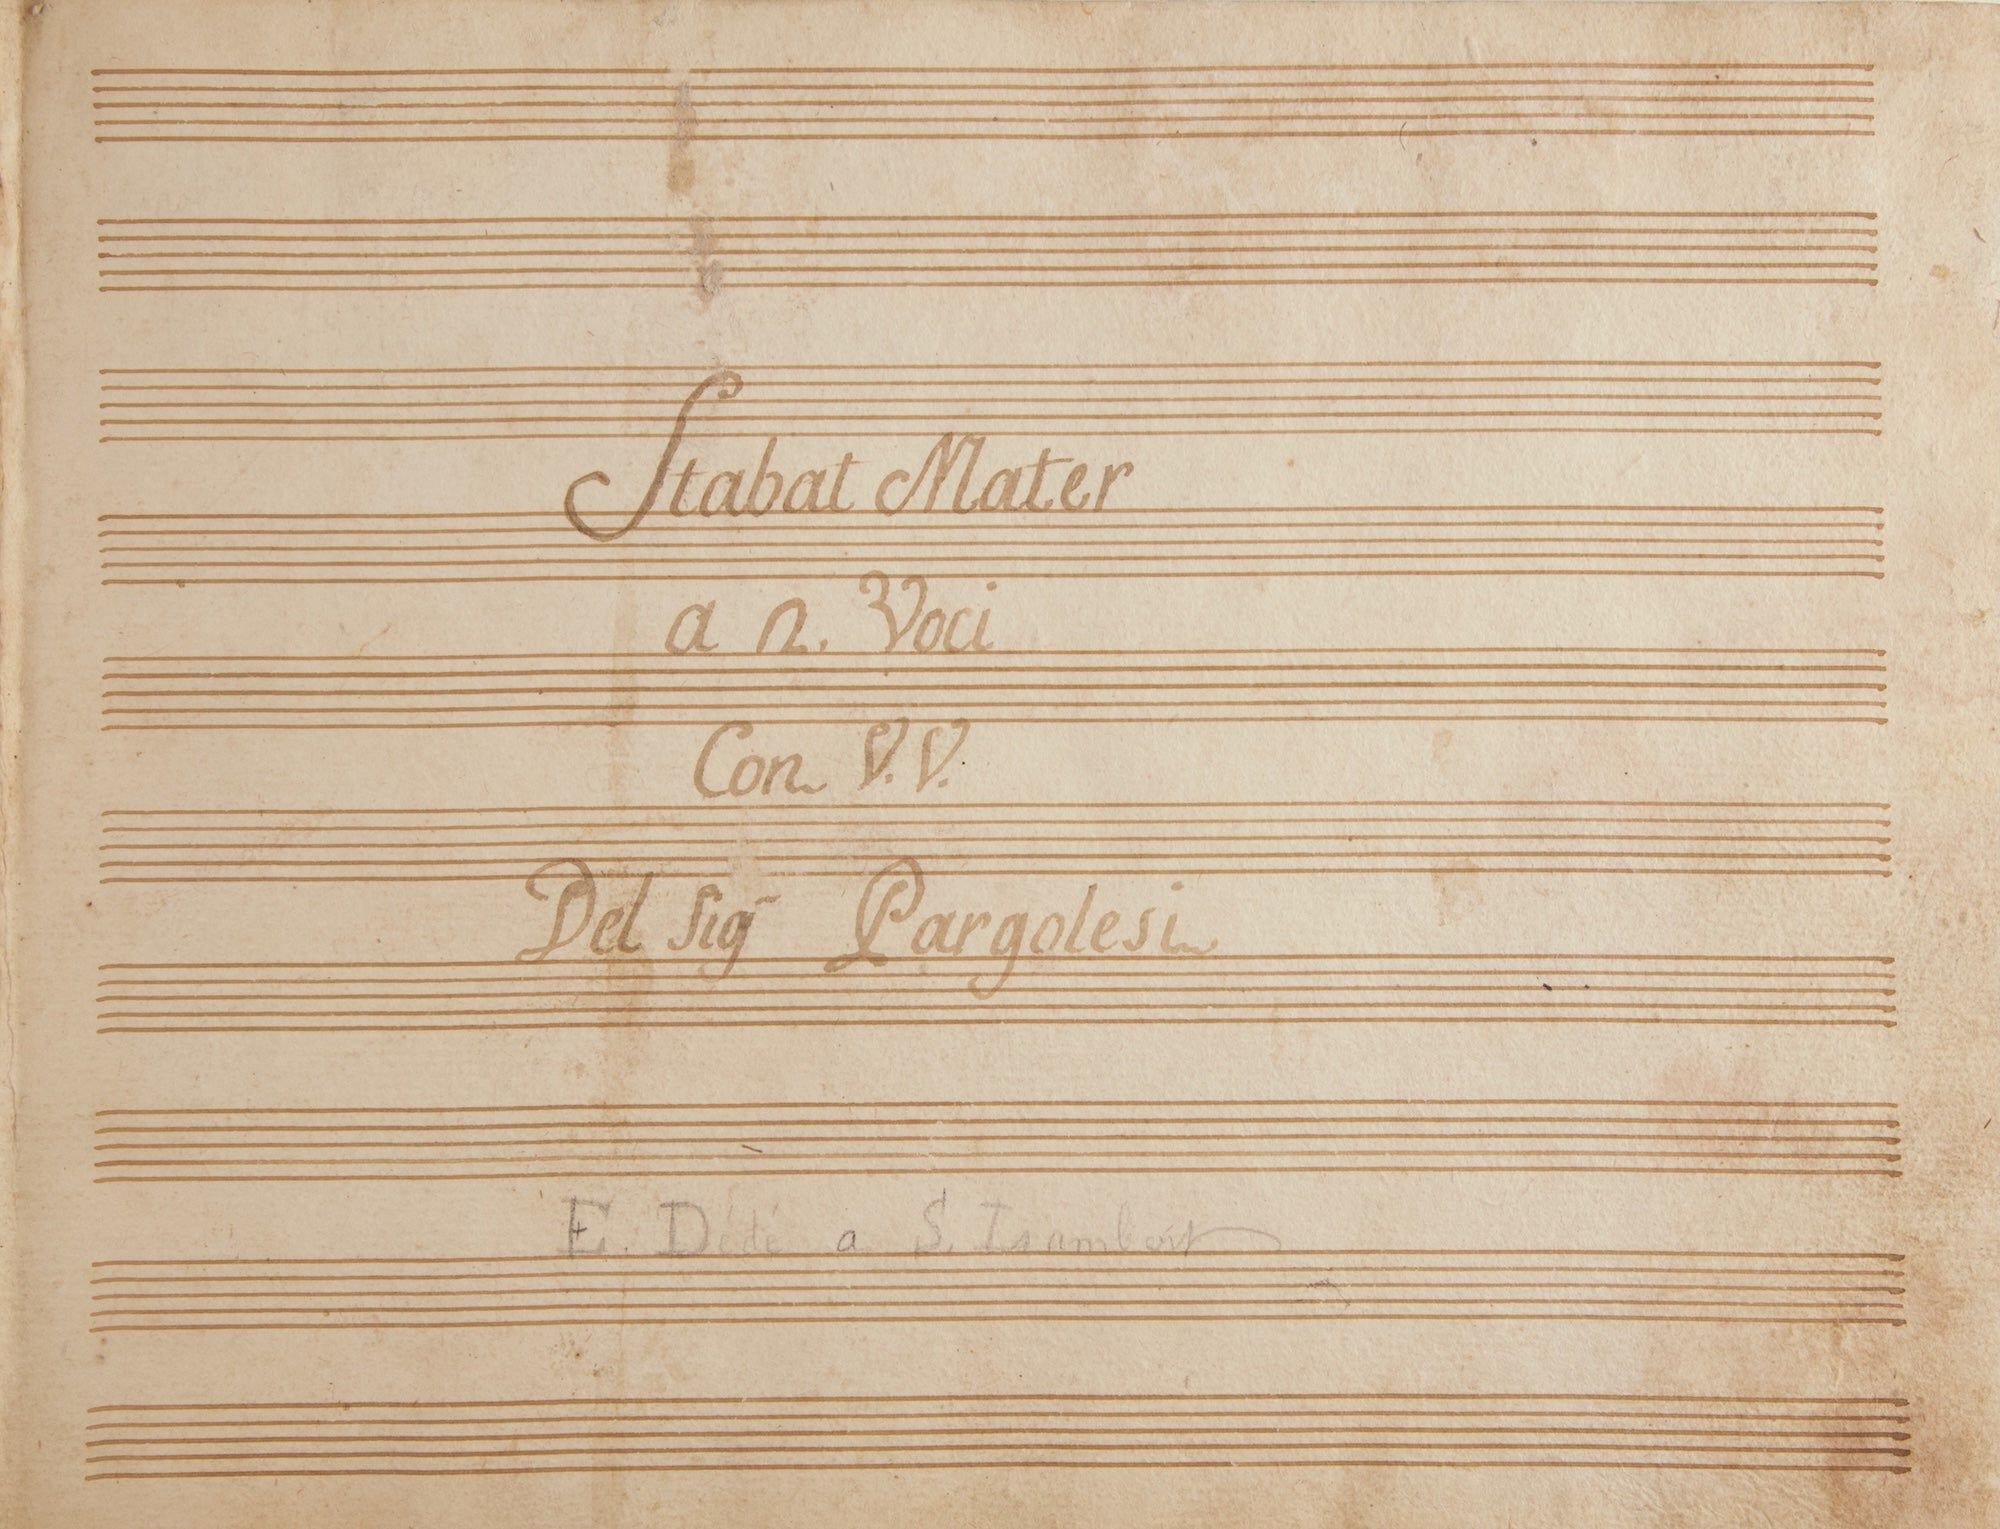 Stabat Mater
a 2. Voci
Con V.V.
Del Sig Pargolesi
E. Dédé a S. Isambert